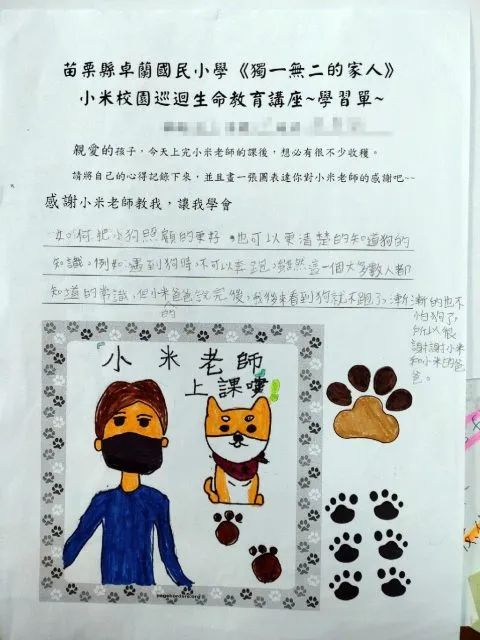 苗栗縣卓蘭國民小學《獨一無二的家人》
小米校園巡迴生命教育講座~學習單~
親愛的孩子，今天上完小米老師的課後，想必有很不少收穫。
請將自己的心得記錄下來，並且畫一張圖表達你對小米老師的感謝吧~~
感謝小米老師教我，讓我學會
如何把小狗照顧的更好，也可以更清楚的知道狗的
知識。例如:遇到狗時,不可以奔跑。雖然這一個大多數人都
知道的常識，但小米爸爸說完後，我後來看到狗就不跑了。漸
的
漸的也不
怕狗了，
所以很
謝謝小米
和小米的爸
爸。
小米老師
上課嘍
pageborders.org